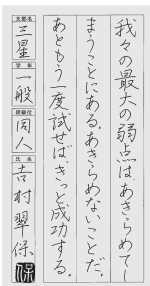 我々の最大の弱点はあきらめてし
まうことにある。あきらめないことだ。
あともう一度試せば、きっと成功する。
支部名
三星
学年
一般
段級位
同人
氏名
吉村翠保
保